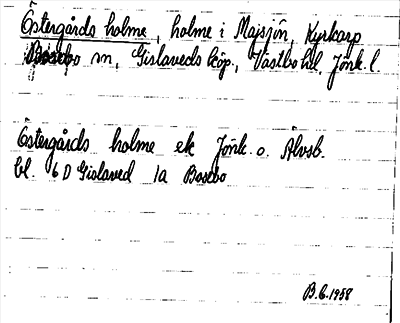 Östergårds holme, holme i Majsjön, Kyrkarp
Bosebo sn, Gislaveds köp., Västbo hd, Jönk. l.
Östergårds holme ek Jönk. o. Älvsb.
bl. 6 D Gislaved 1a Bosebo
B.E. 1958